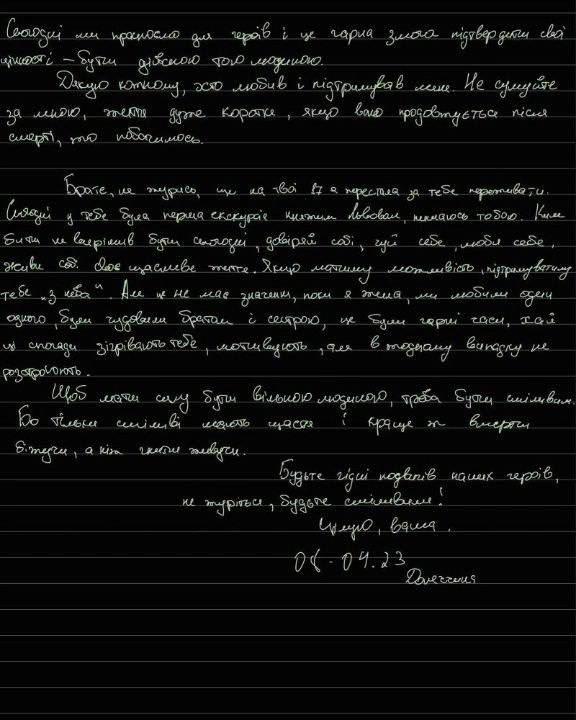 Сьогодні ми працюємо для героїв і це гарна змога підтвердити свої
цінності – бути дійсною тою людиною.
Дякую кожному, хто любив і підтримував мене. Не сумуйте
за мною, життя дуже коротке, якщо воно продовжується після
смерті, то побачимось.
Брате, не журись, що на твої 17 я перестала за тебе переживати.
Сьогодні у тебе була перша екскурсія княжим Львовом, пишаюсь тобою. Ким
би ти не вирішив бути сьогодні, довіряй собі, чуй себе, люби себе,
живи собі своє щасливе життя. Якщо матиму можливість, підтримуватиму
тебе "з неба". Але це не має значення, поки я жила, ми любили один
одного, були чудовими братом і сестрою, це були гарні часи, хай
ці спогади зігрівають тебе, мотивують, але в жодному випадку не
розстроюють.
Щоб мати силу бути вільною людиною, треба бути сміливим.
Бо тільки сміливі мають щастя і краще ж вмерти
біжучи, а ніж гнити живучи.
Будьте гідні подвигів наших героїв,
не журіться, будьте сміливими!
Цілую, ваша.
04.23
Донеччина